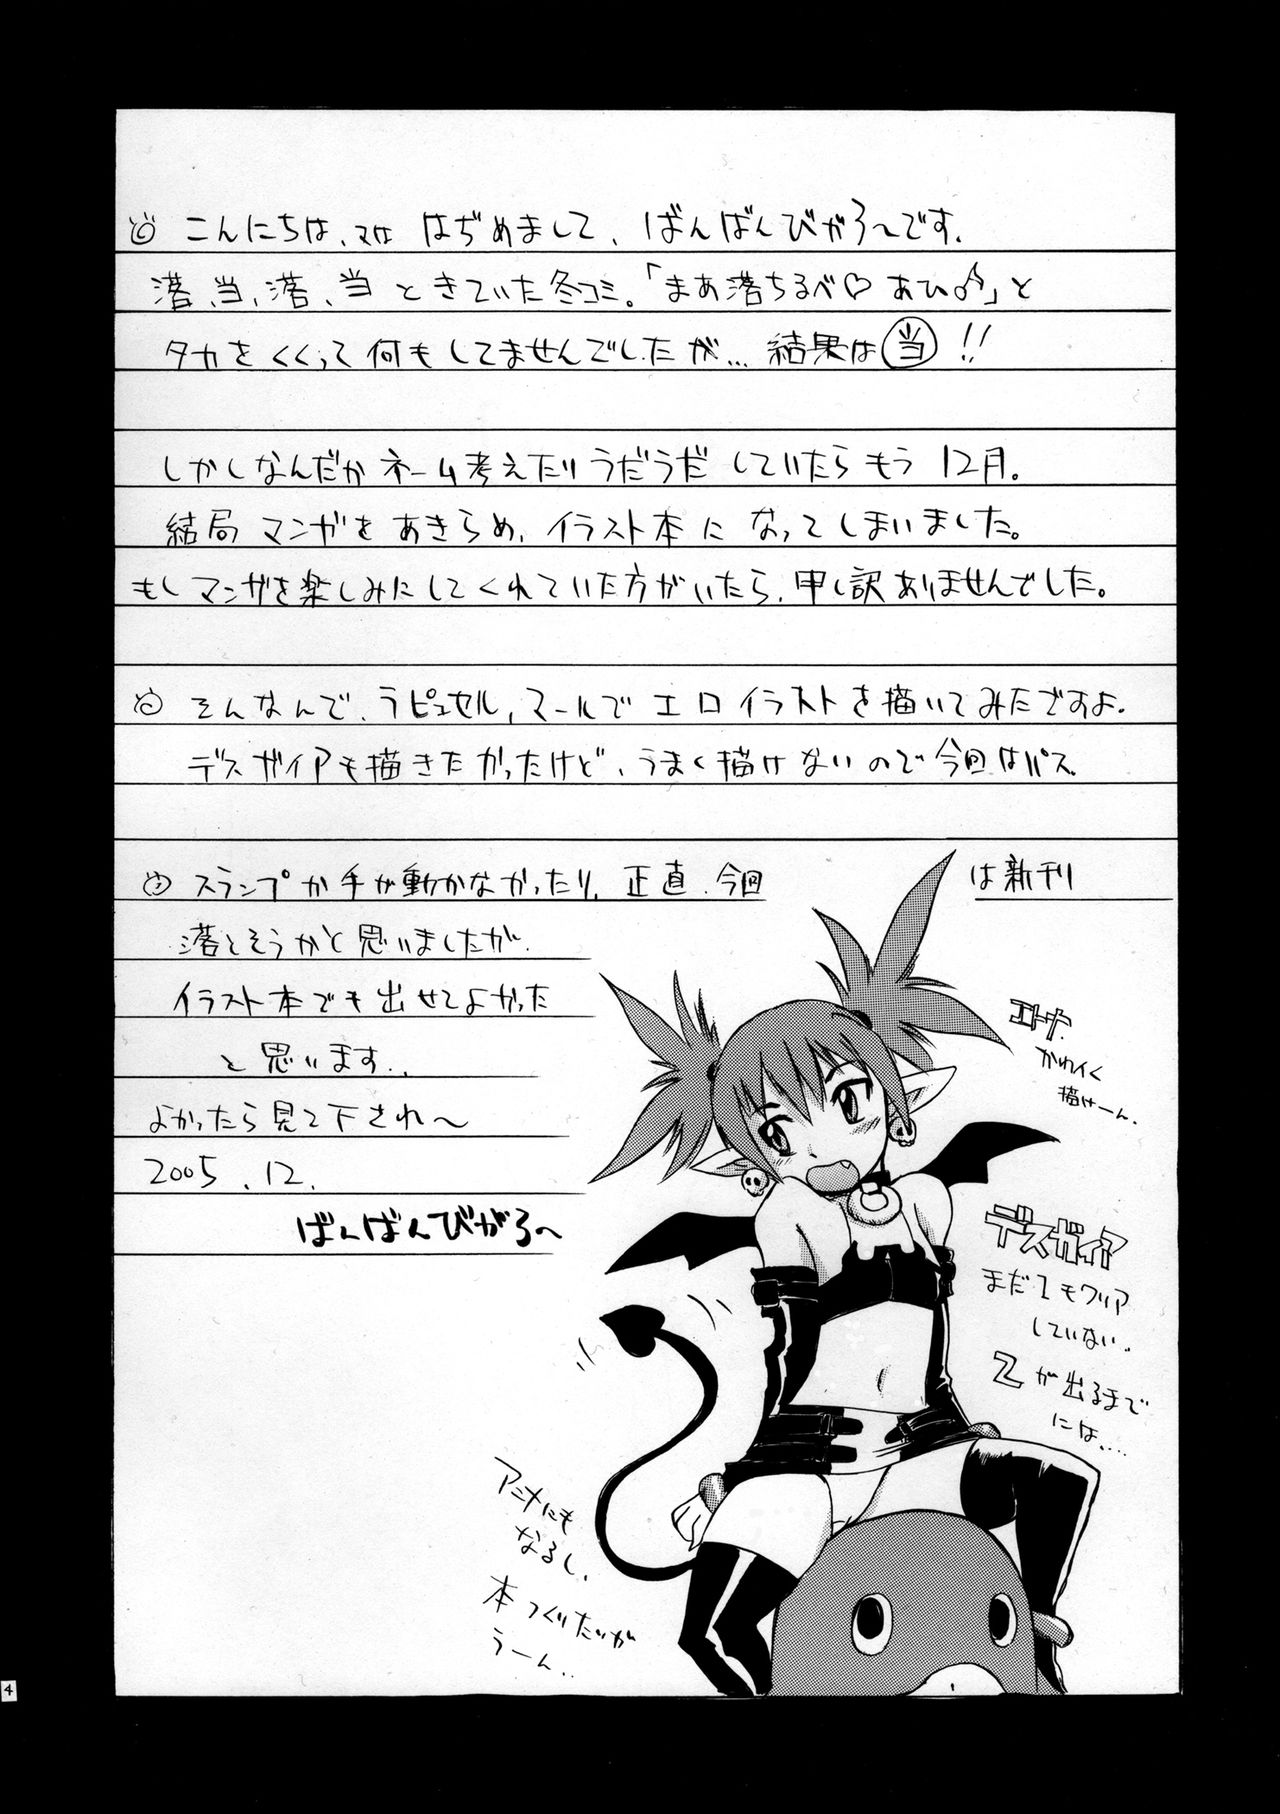 こんにちは、又は はぢめまして、ばんばんびがろ〜です。
落、当、落、当ときていた冬コミ。「まあ落ちるべ♡あひ♂」と
タカをくくって何もしてませんでしたが… 結果は当!!
しかしなんだかネーム考えたりうだうだしていたらもう12月。
結局マンガをあきらめ、イラスト本になってしまいました。
もしマンガを楽しみにしてくれていた方がいたら、申し訳ありませんでした。
そんなんで、ラピュセル、マールでエロイラストを描いてみたですよ。
デスガイアも描きたかったけど、うまく描けないので今回はパス。
スランプか手が動かなかったり、正直、今回は新刊
落とそうかと思いましたが、
イラスト本でも出せてよかった
と思います..
よかったら見て下され〜
2005.12.
ばんばんびがろ〜
エトナ
かわイく
描けーん.
デスガイア
まだ1もクリア
していない.
2が出るまで
にな.....
アニメにも
なるし、
本つくりたいが
うーん..
4